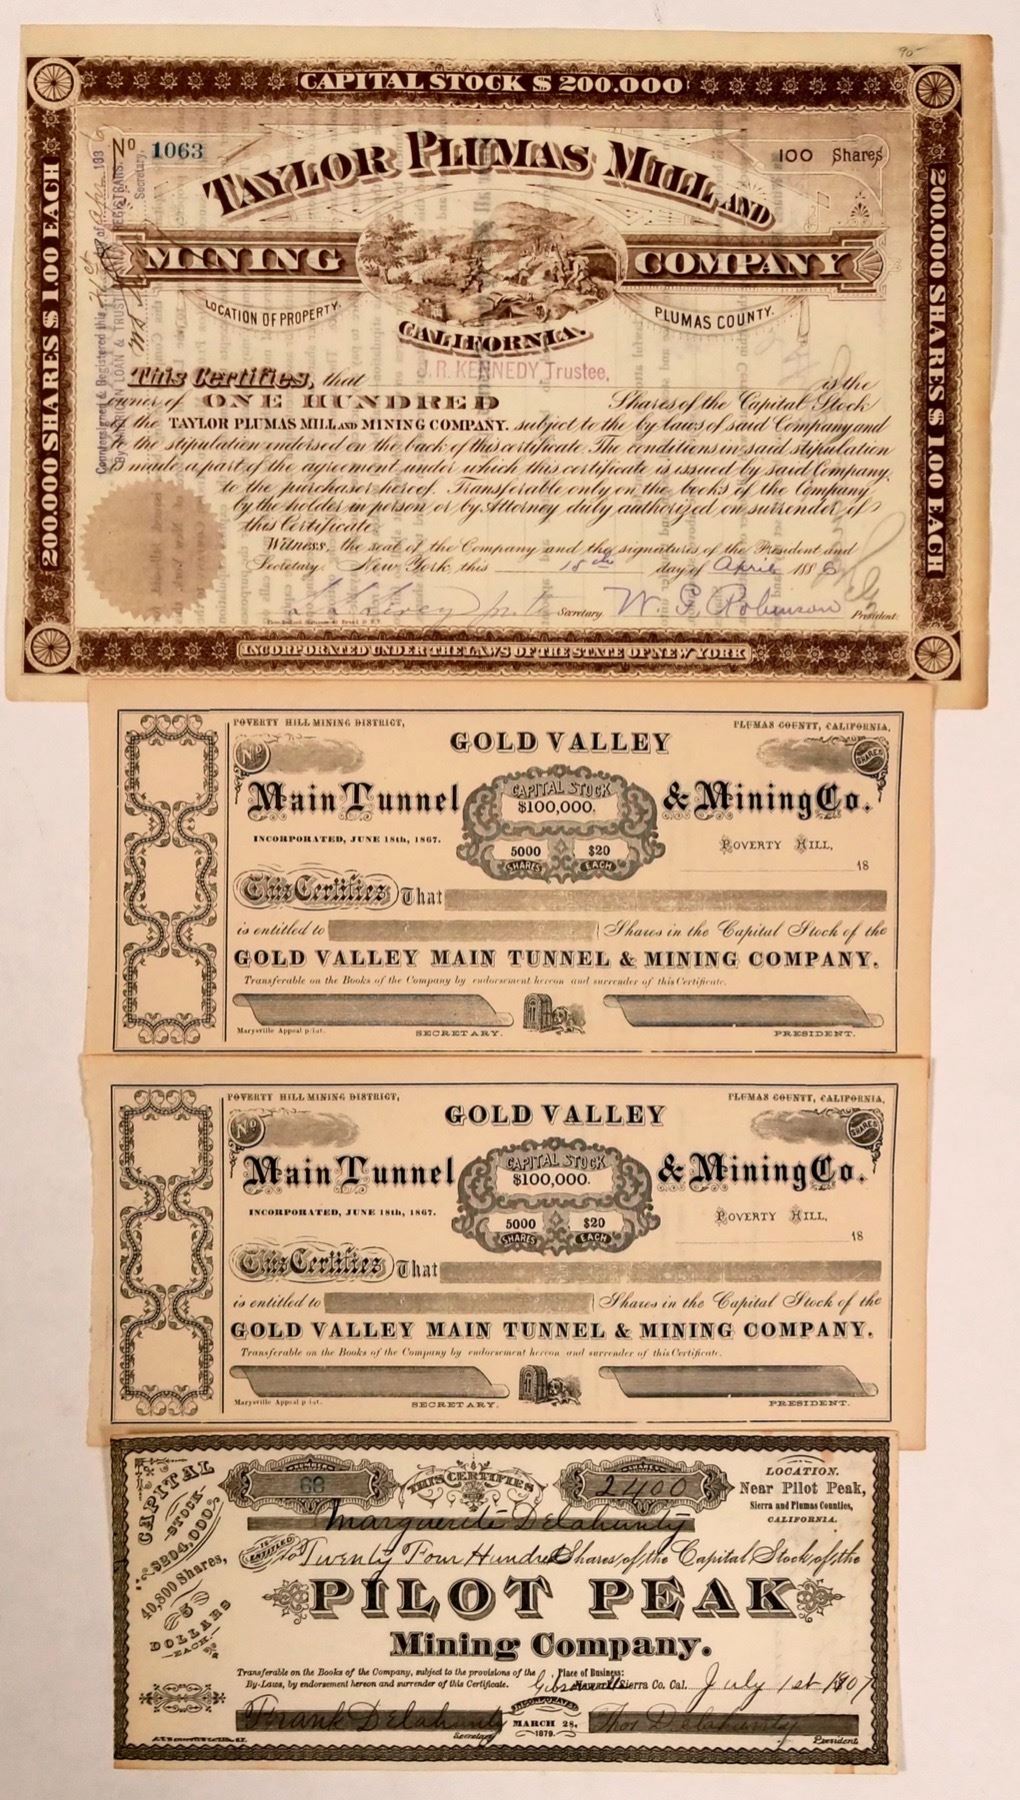 90-
CAPITAL STOCK $ 200.000
200.000 SHARES $ 1.00 EACH
200.000 SHARES $ 1.00 EACH
No 1063
100 Shares
TAYLOR PLUMAS MILL AND
MINING COMPANY
LOCATION OF PROPERTY.
PLUMAS COUNTY.
CALIFORNIA.
Countersigned & Registered this
LOAN & TRUST
REGISTRARS.
Secretary.
J. R. KENNEDY Trustee,
This Certifies, that is the
owner of ONE HUNDRED Shares of the Capital Stock
of the TAYLOR PLUMAS MILL AND MINING COMPANY. subject to the by-laws of said Company and
to the stipulation endorsed on the back of this certificate. The conditions in said stipulation
is made a part of the agreement under which this certificate is issued by said Company,
to the purchaser hereof. Transferable only on the books of the Company
by the holder in person or by Attorney duly authorized on surrender of
this Certificate.
Witness, the seal of the Company and the signatures of the President and
Secretary. New York, this 18th day of April 1886
Secretary. W. G. Robinson President.
INCORPORATED UNDER THE LAWS OF THE STATE OF NEW YORK
POVERTY HILL MINING DISTRICT, PLUMAS COUNTY, CALIFORNIA,
GOLD VALLEY
No SHARES
Main Tunnel & Mining Co.
CAPITAL STOCK
$100,000.
INCORPORATED, JUNE 18th, 1867.
5000 SHARES $20 EACH
POVERTY HILL,
18
This Certifies That
is entitled to Shares in the Capital Stock of the
GOLD VALLEY MAIN TUNNEL & MINING COMPANY.
Transferable on the Books of the Company by endorsement hereon and surrender of this Certificate.
Marysville Appeal print. SECRETARY. PRESIDENT.
POVERTY HILL MINING DISTRICT, PLUMAS COUNTY, CALIFORNIA,
GOLD VALLEY
No SHARES
Main Tunnel & Mining Co.
CAPITAL STOCK
$100,000.
INCORPORATED, JUNE 18th, 1867.
5000 SHARES $20 EACH
POVERTY HILL,
18
This Certifies That
is entitled to Shares in the Capital Stock of the
GOLD VALLEY MAIN TUNNEL & MINING COMPANY.
Transferable on the Books of the Company by endorsement hereon and surrender of this Certificate.
Marysville Appeal print. SECRETARY. PRESIDENT.
CAPITAL
STOCK
$204,000.
40,800 Shares,
5
DOLLARS
EACH
68 THIS CERTIFIES 2400
LOCATION.
Near Pilot Peak,
Sierra and Plumas Counties,
CALIFORNIA.
Marguerite Delahunty
IS ENTITLED To Twenty Four Hundred Shares of the Capital Stock of the
PILOT PEAK
Mining Company.
Transferable on the Books of the Company, subject to the provisions of the
By-Laws, by endorsement hereon and surrender of this Certificate.
Place of Business:
Gibsonville Sierra Co. Cal. July 1st 1907
Frank Delahunty Secretary
INCORPORATED
MARCH 28,
1879.
Thos Delahunty President